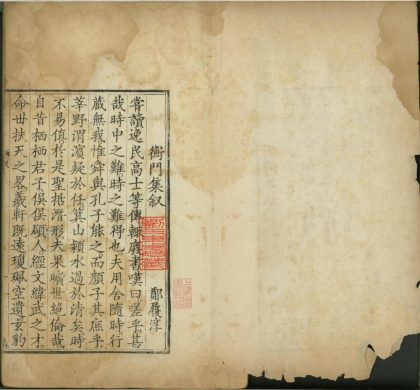 衡門集叙
鄭履淳
嘗讀逸民高士等傳輒廢書嘆曰嗟乎甚
哉時中之難時之難得也夫用舍隨時行
藏無我惟舜與孔子能之而顔子其庶乎
莘野渭濵疑於任箕山潁水過於清矣時
不易慎於是聖哲潛形夫果曠世絶倫哉
自昔栖栖君子俁俁碩人經文緯武之才
命世扶天之畧羲軒既遠瓊珮空遺玄豹